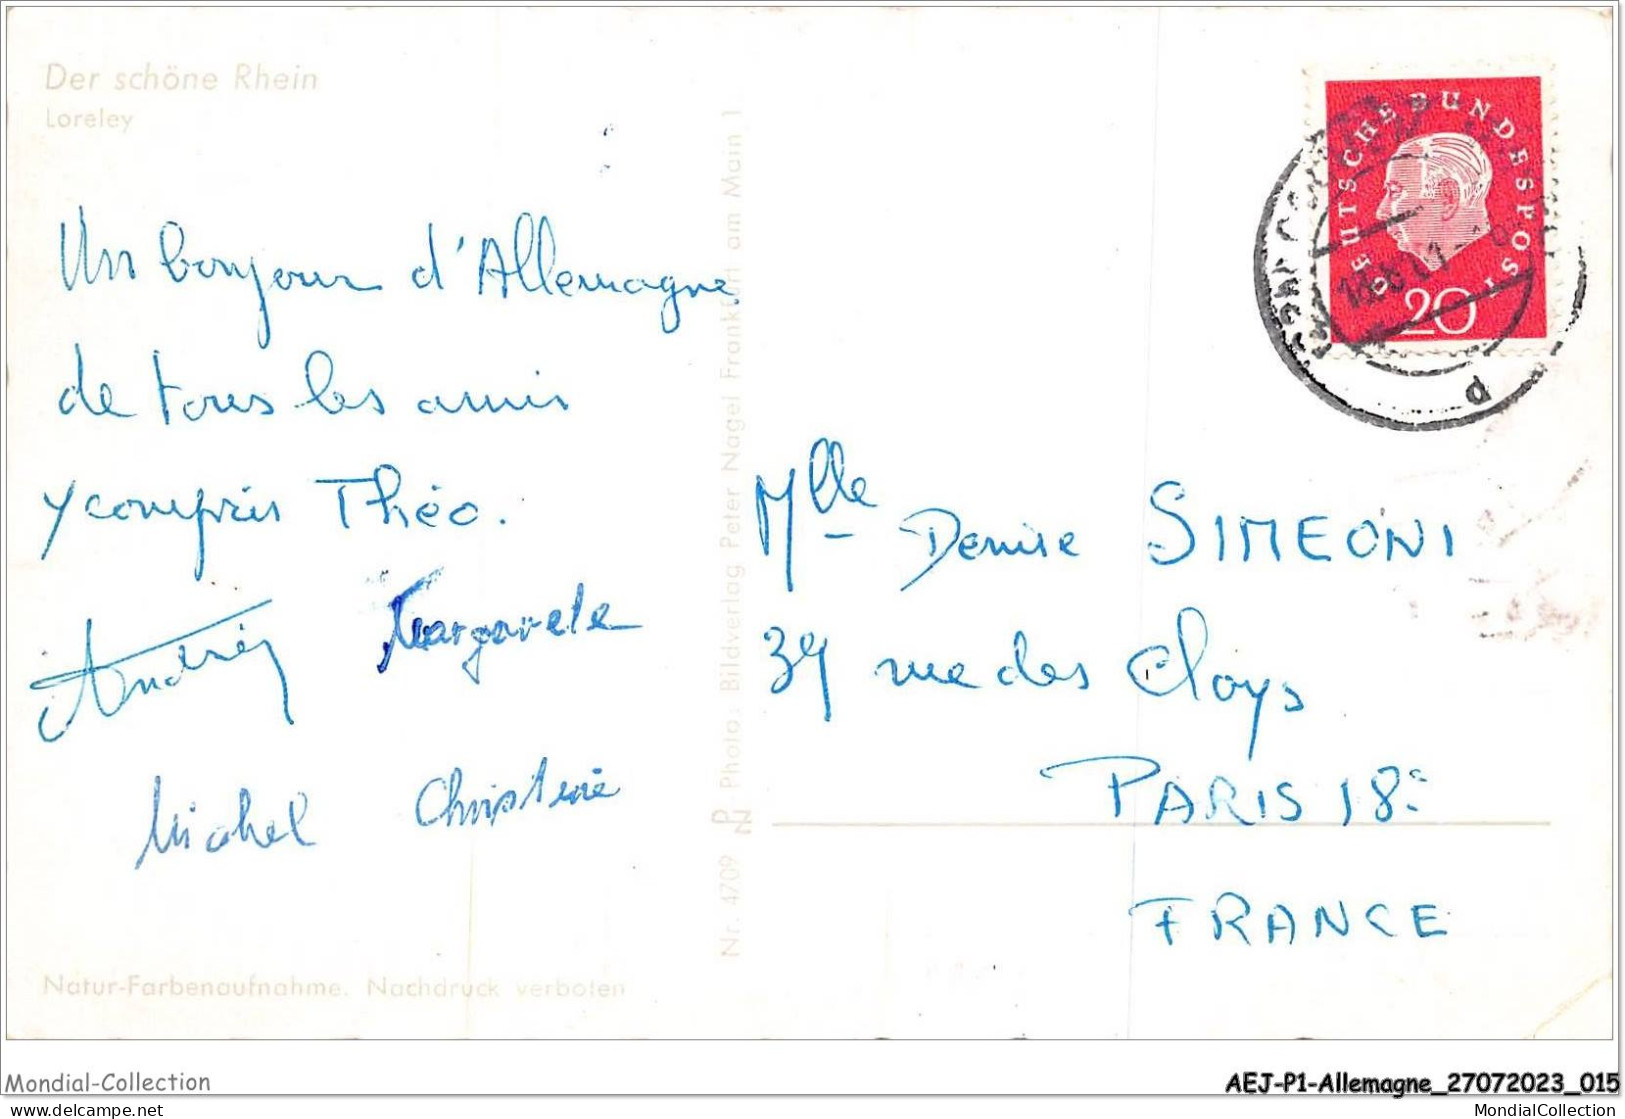 Der schöne Rhein
Loreley
Un bonjour d'Allemagne
de tous les amis
y compris Théo.
Andrée Margarete
Michel Christine
Natur-Farbenaufnahme. Nachdruck verboten
Nr. 4709 PN Photo u. Bildverlag Peter Nagel Frankfurt am Main 1
DEUTSCHE BUNDESPOST
20
d
Mlle Denise SIMEONI
39 rue des Cloys
PARIS 18e
FRANCE
Mondial-Collection
AEJ-P1-Allemagne_27072023_015
www.delcampe.net
MondialCollection